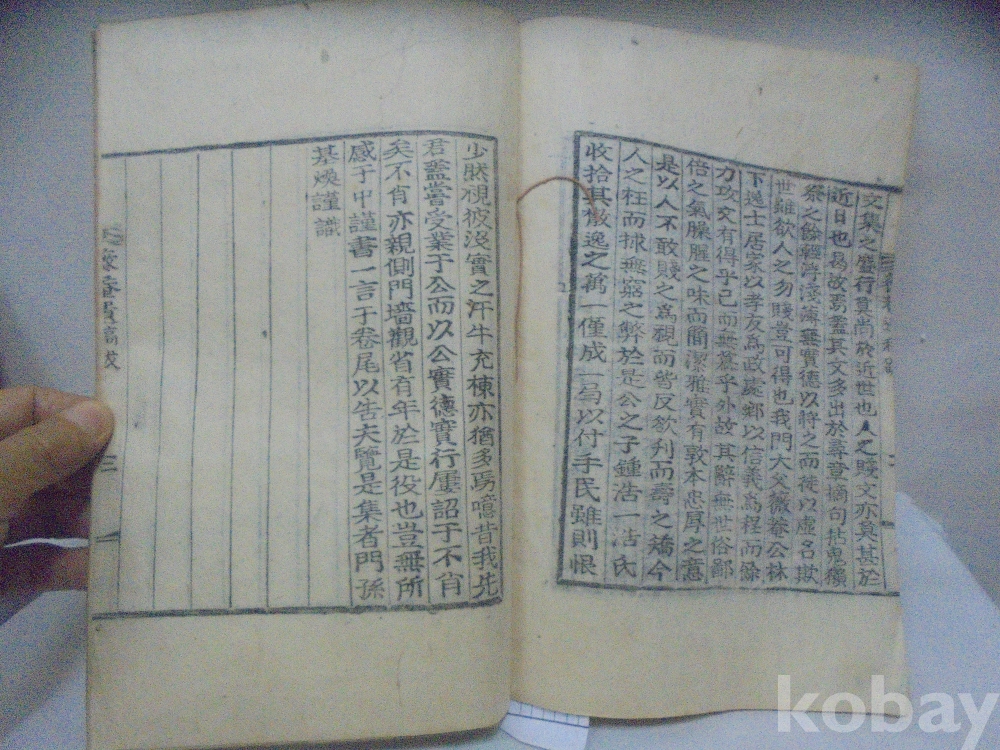 文集之盛行莫尚於近世也人之賤文亦莫甚於
近日也曷故焉蓋其文多出於尋章摘句括鬼獺
祭之餘輕浮淺薄無實德以將之而徒以虛名欺
世雖欲人之勿賤豈可得也我門大父薇菴公林
下逸士居家以孝友爲政處鄉以信義爲程而餘
力攻文有得乎己而無慕乎外故其辭無世俗鄙
倍之氣臊腥之味而簡潔雅實有敦本忠厚之意
是以人不敢賤之爲視而皆反欲刋而壽之矯今
人之枉而捄無窮之弊於是公之子鍾浩一浩氏
收拾其散逸之萬一僅成一局以付手民雖則恨
少然視彼沒實之汗牛充棟亦猶多焉噫昔我先
君蓋嘗受業于公而以公實德實行屢詔于不肖
矣不肖亦親側門墻觀省有年於是役也豈無所
感于中謹書一言于卷尾以告夫覽是集者門孫
基煥謹識
薇菴遺稿跋
二
kobay